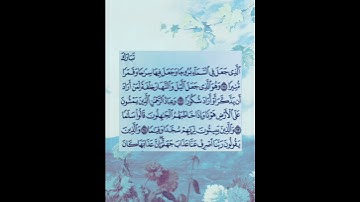 تَبَارَكَ
ٱلَّذِى جَعَلَ فِى ٱلسَّمَآءِ بُرُوجًا وَجَعَلَ فِيهَا سِرَٰجًا وَقَمَرًا
مُّنِيرًا ۝ وَهُوَ ٱلَّذِى جَعَلَ ٱلَّيْلَ وَٱلنَّهَارَ خِلْفَةً لِّمَنْ أَرَادَ
أَن يَذَّكَّرَ أَوْ أَرَادَ شُكُورًا ۝ وَعِبَادُ ٱلرَّحْمَٰنِ ٱلَّذِينَ يَمْشُونَ
عَلَى ٱلْأَرْضِ هَوْنًا وَإِذَا خَاطَبَهُمُ ٱلْجَٰهِلُونَ قَالُوا۟ سَلَٰمًا
۝ وَٱلَّذِينَ يَبِيتُونَ لِرَبِّهِمْ سُجَّدًا وَقِيَٰمًا ۝ وَٱلَّذِينَ
يَقُولُونَ رَبَّنَا ٱصْرِفْ عَنَّا عَذَابَ جَهَنَّمَ إِنَّ عَذَابَهَا كَانَ